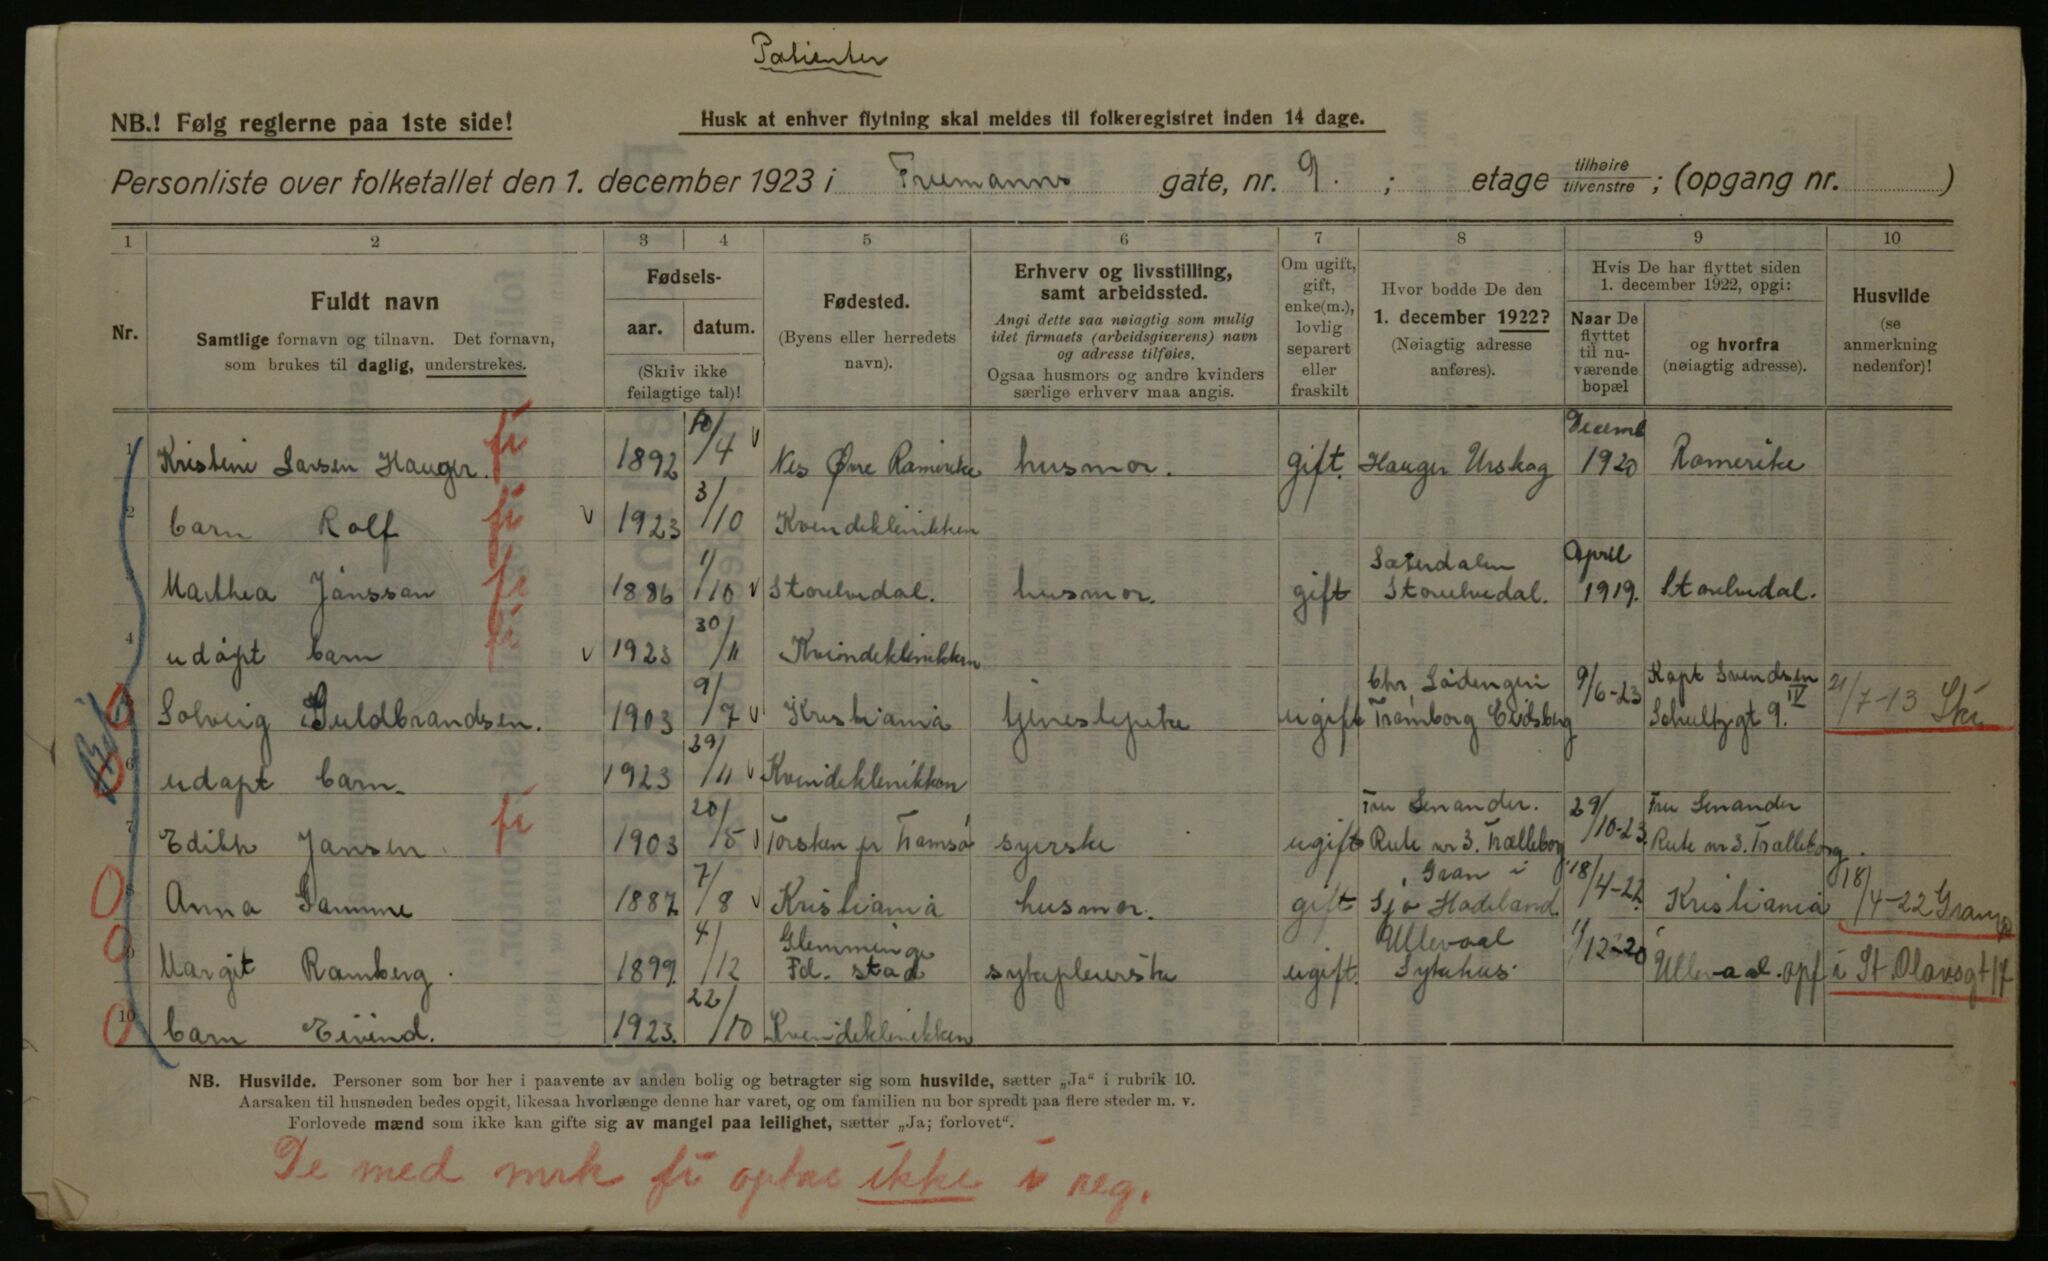 Patienter
NB.! Følg reglerne paa 1ste side!
Husk at enhver flytning skal meldes til folkeregistret inden 14 dage.
Personliste over folketallet den 1. december 1923 i Fruemanns gate, nr. 9. ; etage tilhøire tilvenstre ; (opgang nr. )
1 2 3 4 5 6 7 8 9 10
Nr.
Fuldt navn
Samtlige fornavn og tilnavn. Det fornavn,
som brukes til daglig, understrekes.
Fødsels-
aar. datum.
(Skriv ikke
feilagtige tal)!
Fødested.
(Byens eller herredets
navn).
Erhverv og livsstilling,
samt arbeidssted.
Angi dette saa nøiagtig som mulig
idet firmaets (arbeidsgiverens) navn
og adresse tilføies.
Ogsaa husmors og andre kvinders
særlige erhverv maa angis.
Om ugift,
gift,
enke(m.),
lovlig
separert
eller
fraskilt
Hvor bodde De den
1. december 1922?
(Nøiagtig adresse
anføres).
Hvis De har flyttet siden
1. december 1922, opgi:
Naar De
flyttet
til nu-
værende
bopæl
og hvorfra
(nøiagtig adresse).
Husvilde
(se
anmerkning
nedenfor)!
1 Kristine Larsen Hauger. fi 1892 10/4 Nes Øvre Ramerike husmor. gift. Hauger Urskog Decemb 1920 Romerike
2 barn Rolf fi 1923 3/10 Kvindeklinikken
3 Marthea Jónsson fi 1886 1/10 Storelvedal. husmor. gift Sæterdalen Storelvedal. April 1919. Storelvedal.
4 udøpt barn fi 1923 30/11 Kvindeklinikken
5 Solveig Guldbrandsen. 1903 9/7 Kristiania tjenestepike ugift Chr Lødengen Trømborg Eidsberg 9/6-23 Kapt Svendsen Schultzgt 9. IV 21/7-13 Ski
6 udøpt barn. 1923 29/11 Kvindeklinikken
7 Edith Jansen. fi 1903 20/5 Torsken pr Tromsø syerske ugift Fru Senander. Rute nr 3. Trælleborg 29/10-23. Fru Senander Rute nr 3. Trælleborg.
8 Anna Gamme 1887 7/8 Kristiania husmor. gift Gran i Sjo Hadeland 18/4-22. Kristiania 18/4-22 Gran
9 Margit Ramberg. 1899. 4/12 Glemminge Fd. stad sykepleierske ugift. Ullevaal Sykehus. 1/12-20 Ullevaal. opf i St. Olavsgt 17
10 barn Eivind. 1923. 22/10 Kvindeklinikken
NB. Husvilde. Personer som bor her i paavente av anden bolig og betragter sig som husvilde, sætter „Ja" i rubrik 10.
Aarsaken til husnøden bedes opgit, likesaa hvorlænge denne har varet, og om familien nu bor spredt paa flere steder m. v.
Forlovede mænd som ikke kan gifte sig av mangel paa leilighet, sætter „Ja; forlovet".
De med mrk fi optas ikke i reg.